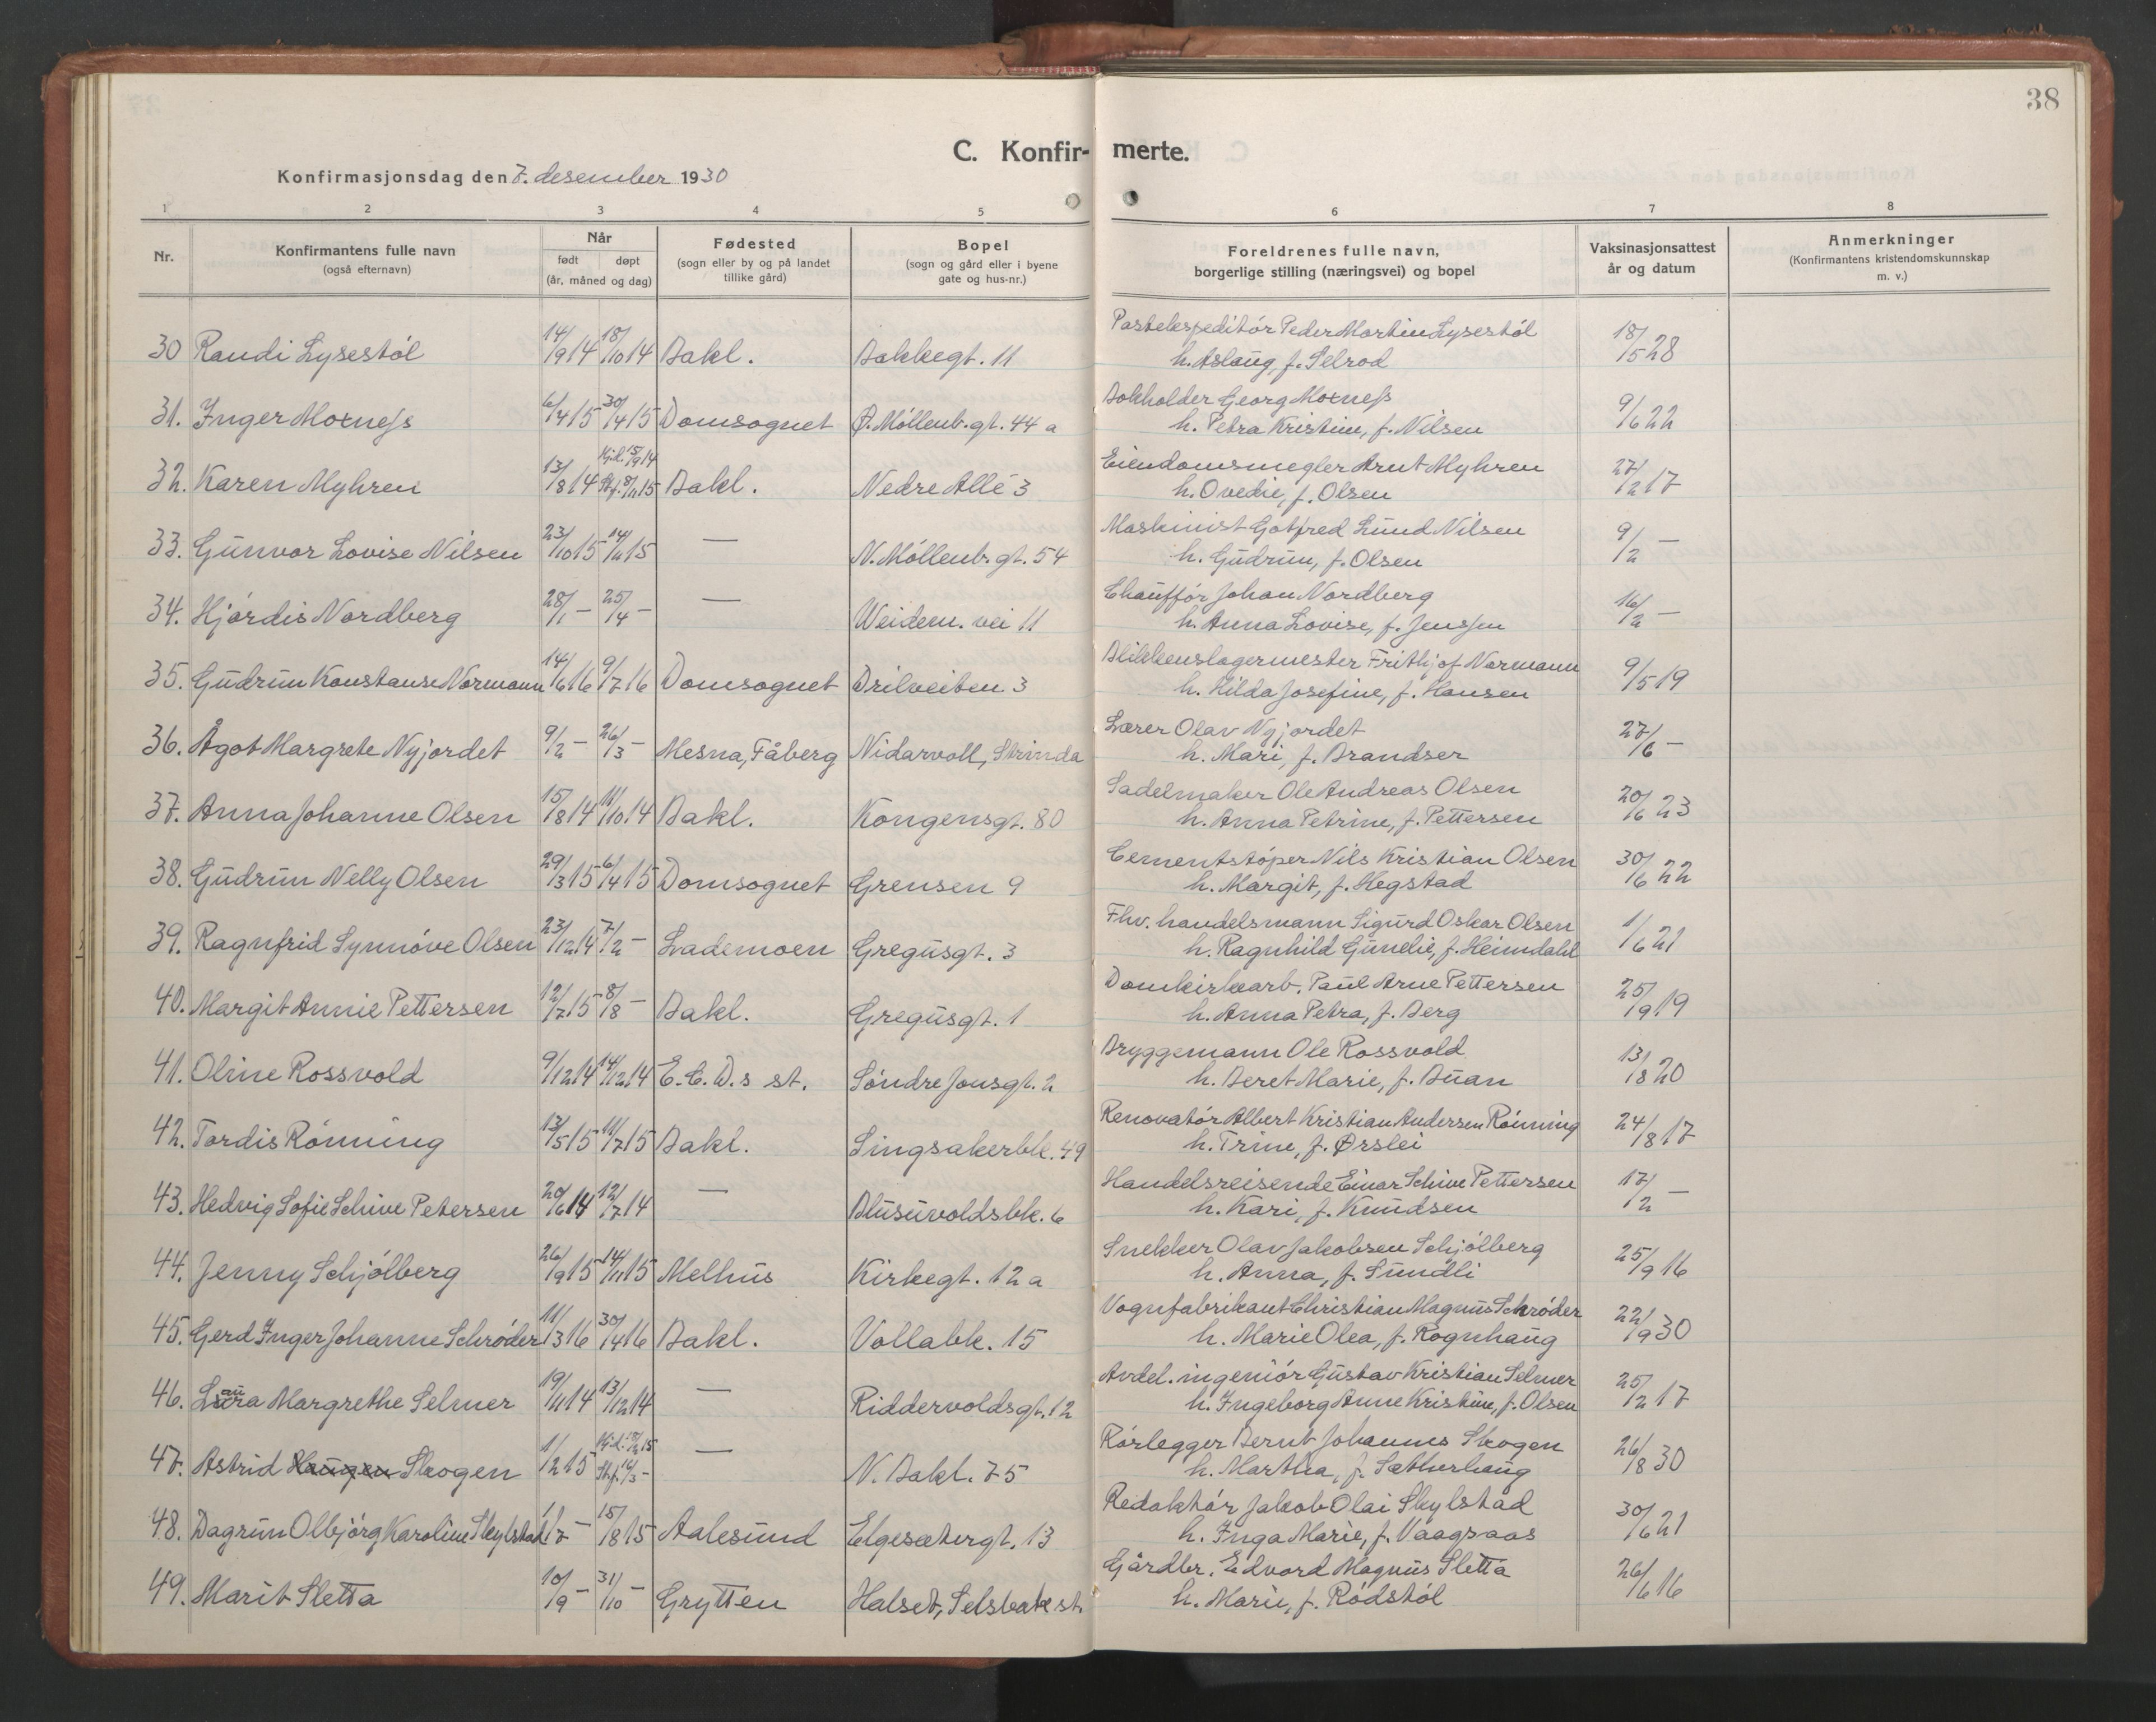 38
C. Konfirmerte.
Konfirmasjonsdag den 7. desember 1930
1 2 3 4 5 6 7 8
Nr. Konfirmantens fulle navn (også efternavn) Når født døpt (år, måned og dag) Fødested (sogn eller by og på landet tillike gård) Bopel (sogn og gård eller i byene gate og hus-nr.) Foreldrenes fulle navn, borgerlige stilling (næringsvei) og bopel Vaksinasjonsattest år og datum Anmerkninger (Konfirmantens kristendomskunnskap m. v.)
30 Randi Lysestöl 14/9 14 18/10 14 Bakl. Bakkegt. 11 Postekspeditör Peder Martin Lysestöl 18/5 28
h. Aslaug, f. Selrod
31. Inger Moxness 6/4 15 30/4 15 Domsognet Ö. Möllenb.gt. 44 a Bokholder Georg Moxness 9/6 22
h. Petra Kristine, f. Nilsen
32. Karen Myhren 13/8 14 Hj.d. 15/9 14 Bakl. Nedre Allé 3 Eiendomsmegler Arnt Myhren 27/2 17
h. Ovedie, f. Olsen
33. Gunvor Lovise Nilsen 23/10 15 14/11 15 — N. Möllenb.gt. 54 Maskinist Gotfred Lund Nilsen 9/2 —
h. Gudrun, f. Olsen
34. Hjördis Nordberg 28/1 — 25/4 — — Weidem. vei 11 Chaufför Johan Nordberg 16/2 —
h. Anna Lovise, f. Jenssen
35. Gudrun Konstanse Normann 14/6 16 9/7 16 Domsognet Brilveiten 3 Blikkenslagermester Frithjof Normann 9/5 19
h. Hilda Josefine, f. Hansen
36. Ågot Margrete Nyjordet 9/2 — 26/3 — Mesna, Fåberg Nidarvoll, Strinda Lærer Olav Nyjordet 27/6 —
h. Mari, f. Brandser
37. Anna Johanne Olsen 15/8 14 11/10 14 Bakl. Kongensgt. 80 Sadelmaker Ole Andreas Olsen 20/6 23
h. Anna Petrine, f. Pettersen
38. Gudrun Nelly Olsen 29/3 15 6/4 15 Domsognet Grensen 9 Cementstöper Nils Kristian Olsen 30/6 22
h. Margit, f. Hegstad
39. Ragnfrid Synnöve Olsen 23/12 14 7/2 — Lademoen Gregusgt. 3 Fhv. handelsmann Sigurd Oskar Olsen 1/6 21
h. Ragnhild Gunelie, f. Heimdahl
40. Margit Annie Pettersen 12/7 15 8/8 — Bakl. Gregusgt. 1 Domkirkearb. Paul Arne Pettersen 25/9 19
h. Anna Petra, f. Berg
41. Oline Rossvold 9/12 14 14/12 14 E. C. D.s st. Söndre Jonsgt. 2 Bryggemann Ole Rossvold 13/8 20
h. Beret Marie, f. Buan
42. Tordis Rönning 13/5 15 11/7 15 Bakl. Singsakerbk. 49 Renovatör Albert Kristian Andersen Rönning 24/8 17
h. Trine, f. Ørslei
43. Hedvig Sofie Schive Petersen 20/6 14 12/7 14 — Blusuvoldsbk. 6 Handelsreisende Einar Schive Pettersen 17/2 —
h. Kari, f. Knudsen
44. Jenny Schjölberg 26/9 15 14/11 15 Melhus Kirkegt. 12 a Snekker Olav Jakobsen Schjölberg 25/9 16
h. Anna, f. Sundli
45. Gerd Inger Johanne Schröder 11/3 16 30/4 16 Bakl. Vollabk. 15 Vognfabrikant Christian Magnus Schröder 22/9 30
h. Marie Olea, f. Rognhaug
46. Laura Margrethe Selmer 19/11 14 13/12 14 — Riddervoldsgt. 12 Avdel. ingeniör Gustav Kristian Selmer 25/2 17
h. Ingeborg Anne Kristine, f. Olsen
47. Astrid Haugen Skogen 1/2 15 Stf. 16/5 — — N. Bakl. 75 Rörlegger Bernt Johannes Skogen 26/8 30
h. Martha, f. Sætherhaug
48. Dagrun Olbjörg Karoline Skylstad 1/7 — 15/8 15 Aalesund Elgesetergt. 13 Redaktör Jakob Olai Skylstad 30/6 21
h. Inga Marie, f. Vaagsaas
49. Marit Sletta 10/9 — 31/10 — Grytten Halset, Selsbakk st. Gårdbr. Edvard Magnus Sletta 26/6 16
h. Marie, f. Rödstöl